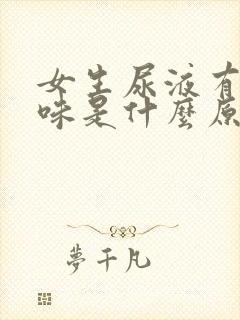 女生尿液有
味是什麼原
夢千凡